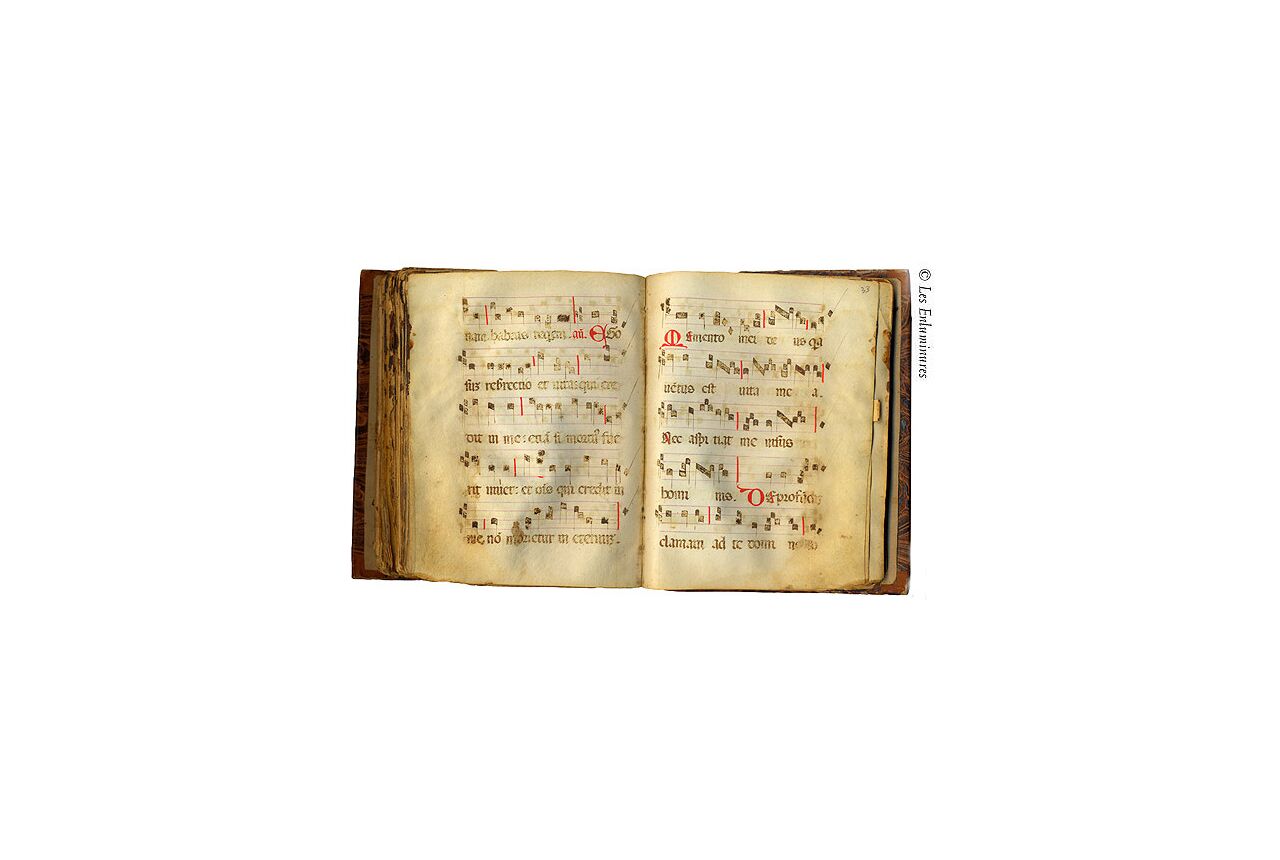 nam habeas requiem. añ. EGo
sum resurrectio et uita: qui cre
dit in me: etiã si mortuꝰ fue
rit uiuet: et oĩs qui credit in
me, nõ morietur in eternũ.
33
Memento mei deus q̃a
uẽtus est uita mea.
Nec aspiciat me uisus
homi nis. De profũdis
clamaui ad te domine
© Les Enluminures